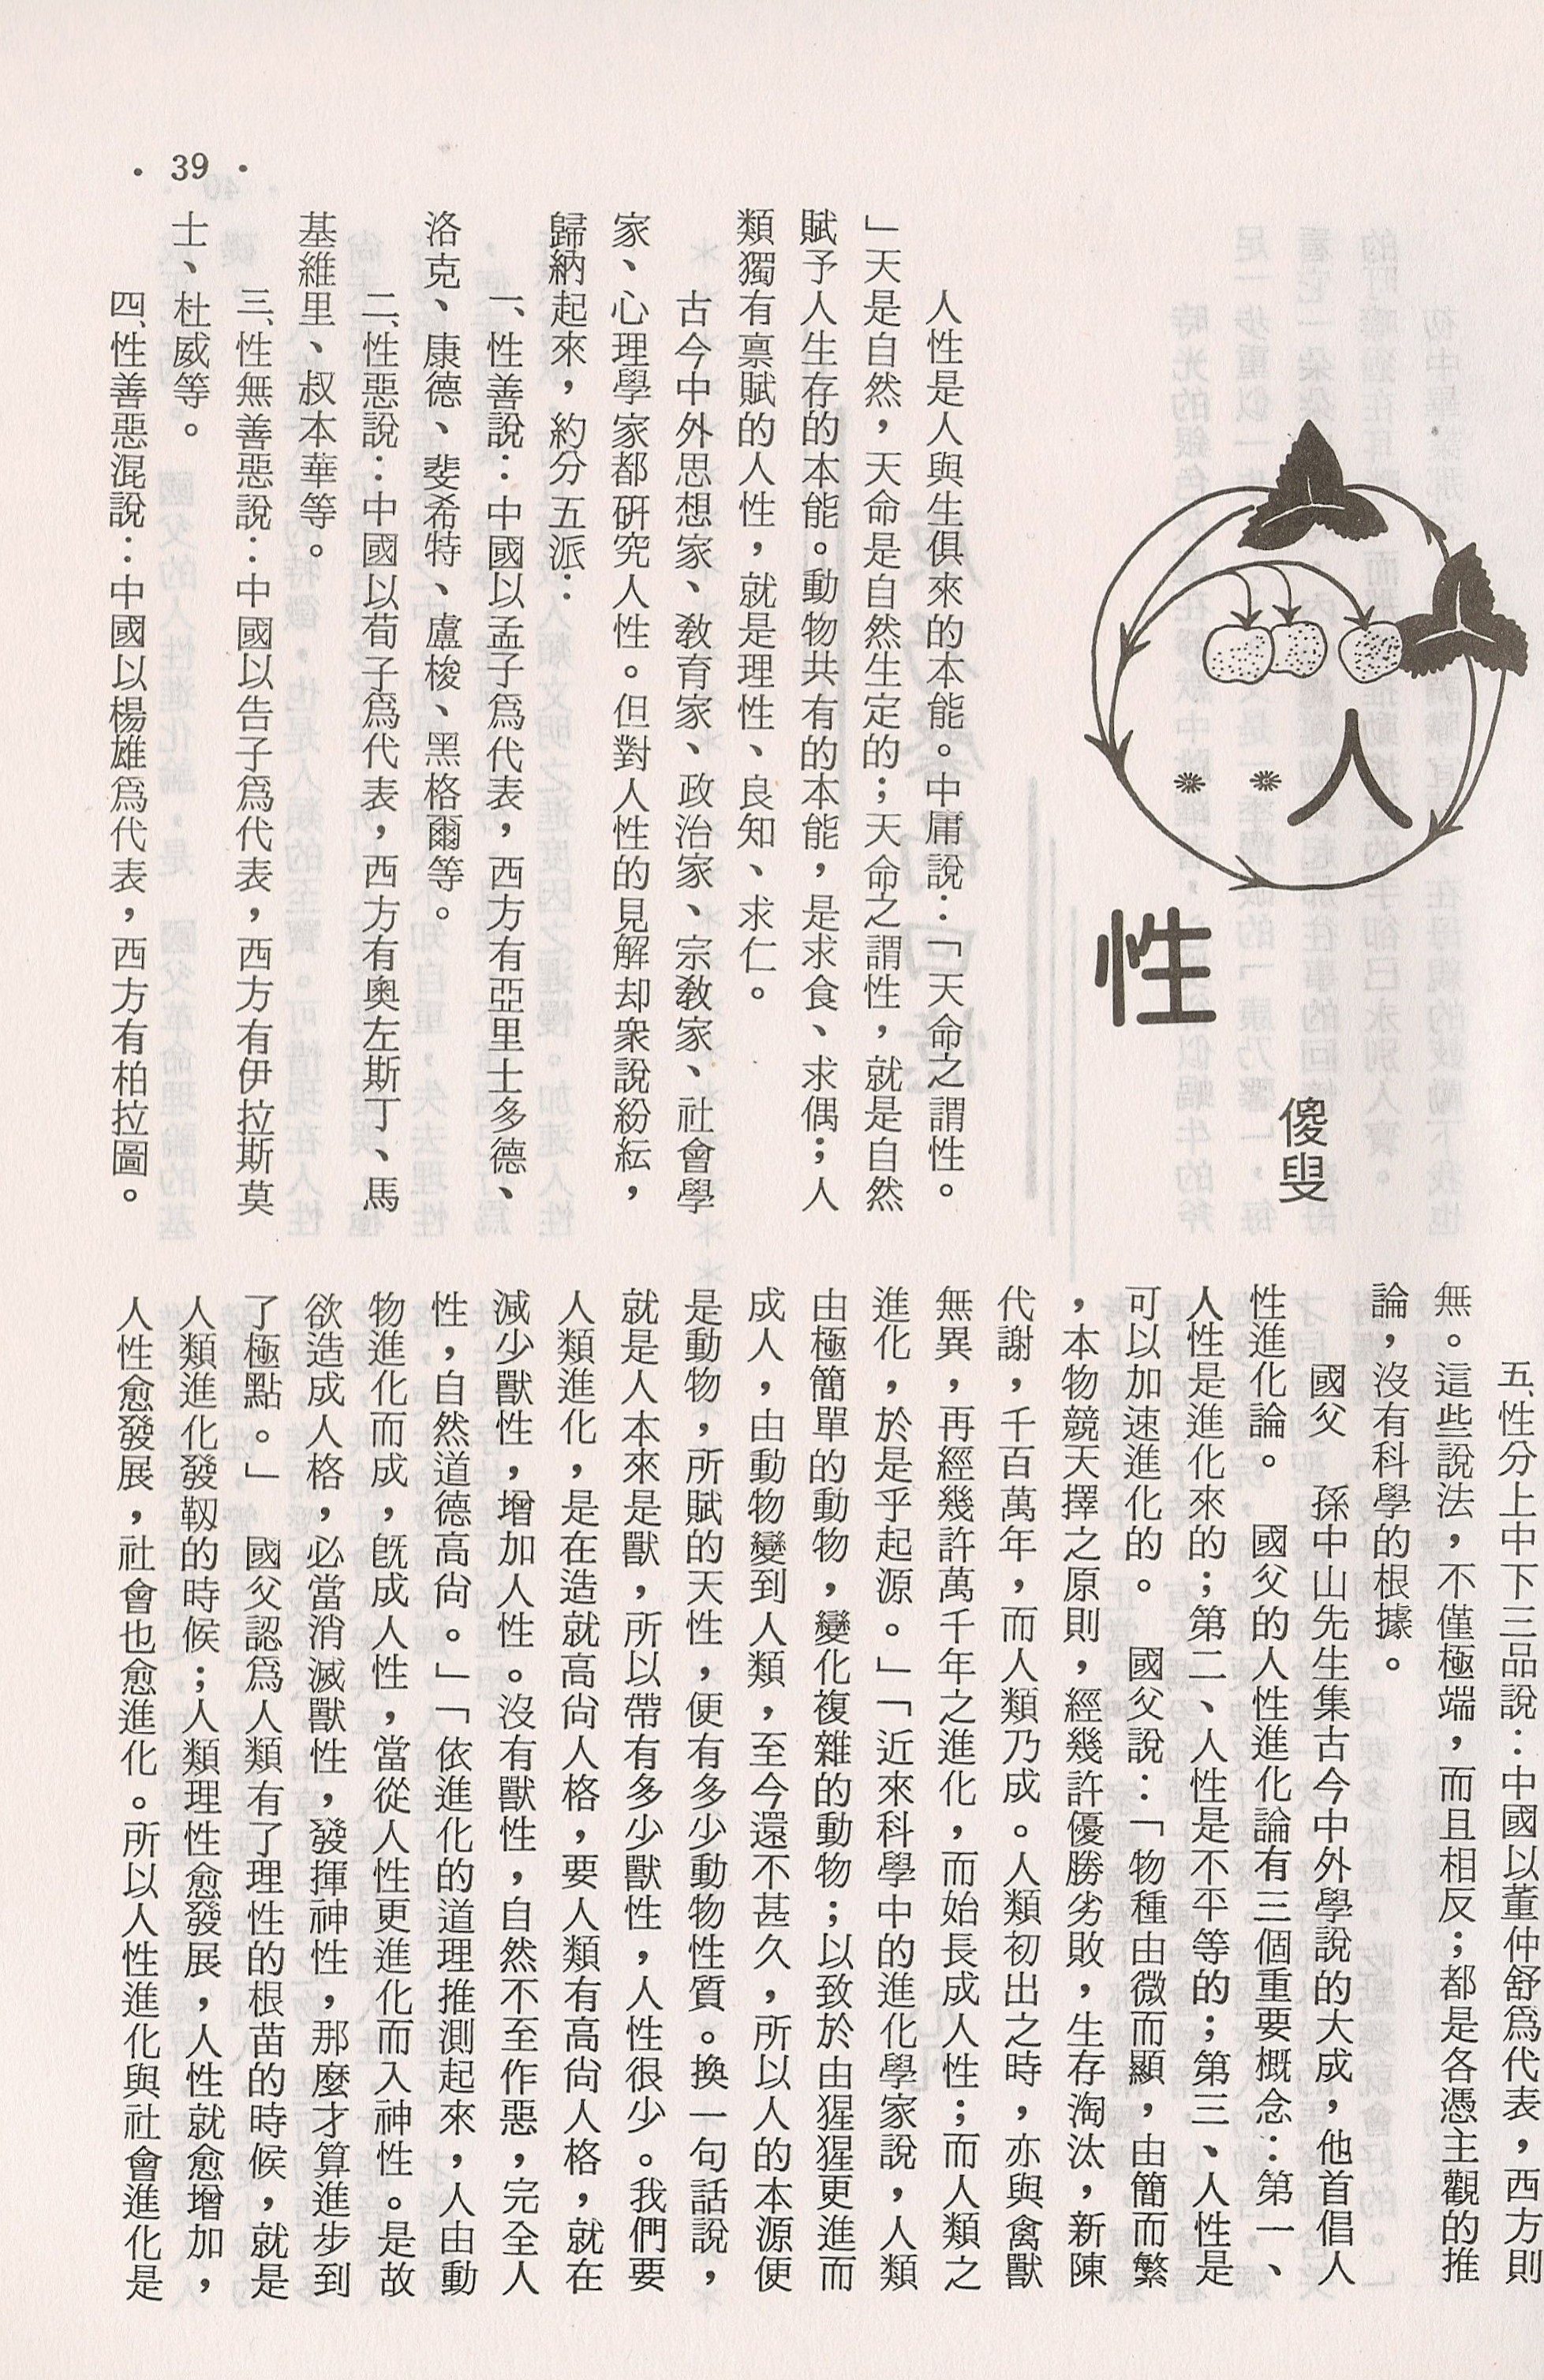 人性
傻叟
人性是人與生俱來的本能。中庸說：「天命之謂性。
」天是自然，天命是自然生定的；天命之謂性，就是自然
賦予人生存的本能。動物共有的本能，是求食、求偶；人
類獨有禀賦的人性，就是理性、良知、求仁。
古今中外思想家、教育家、政治家、宗教家、社會學
家、心理學家都研究人性。但對人性的見解却衆說紛紜，
歸納起來，約分五派：
一、性善說：中國以孟子爲代表，西方有亞里士多德、
洛克、康德、斐希特、盧梭、黑格爾等。
二、性惡說：中國以荀子爲代表，西方有奧左斯丁、馬
基維里、叔本華等。
三、性無善惡說：中國以告子爲代表，西方有伊拉斯莫
士、杜威等。
四、性善惡混說：中國以楊雄爲代表，西方有柏拉圖。
五、性分上中下三品說：中國以董仲舒爲代表，西方則
無。這些說法，不僅極端，而且相反；都是各憑主觀的推
論，沒有科學的根據。
國父　孫中山先生集古今中外學說的大成，他首倡人
性進化論。　國父的人性進化論有三個重要概念：第一、
人性是進化來的；第二、人性是不平等的；第三、人性是
可以加速進化的。　國父說：「物種由微而顯，由簡而繁
，本物競天擇之原則，經幾許優勝劣敗，生存淘汰，新陳
代謝，千百萬年，而人類乃成。人類初出之時，亦與禽獸
無異，再經幾許萬千年之進化，而始長成人性；而人類之
進化，於是乎起源。」「近來科學中的進化學家說，人類
由極簡單的動物，變化複雜的動物；以致於由猩猩更進而
成人，由動物變到人類，至今還不甚久，所以人的本源便
是動物，所賦的天性，便有多少動物性質。換一句話說，
就是人本來是獸，所以帶有多少獸性，人性很少。我們要
人類進化，是在造就高尙人格，要人類有高尙人格，就在
減少獸性，增加人性。沒有獸性，自然不至作惡，完全人
性，自然道德高尙。」「依進化的道理推測起來，人由動
物進化而成，旣成人性，當從人性更進化而入神性。是故
欲造成人格，必當消滅獸性，發揮神性，那麼才算進步到
了極點。」　國父認爲人類有了理性的根苗的時候，就是
人類進化發軔的時候；人類理性愈發展，人性就愈增加，
人性愈發展，社會也愈進化。所以人性進化與社會進化是
·39·